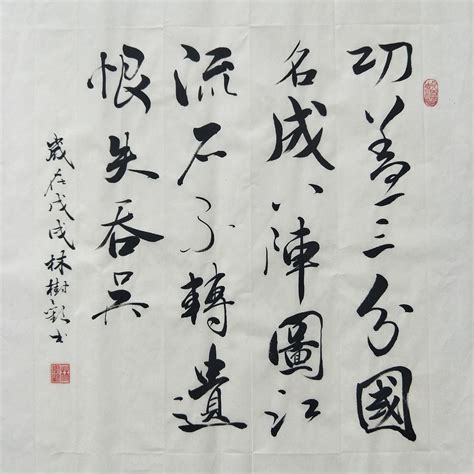 功蓋三分國
名成八陣圖江
流石不轉遺
恨失吞吳
歲在戊戌林樹書